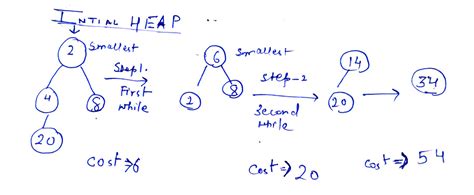 INTIAL HEAP
2 Smallest
4 8
20
Step1.
First
while
6 Smallest
2 8
Step-2
Second
while
14
20
34
Cost⇒6
Cost⇒20
Cost⇒54